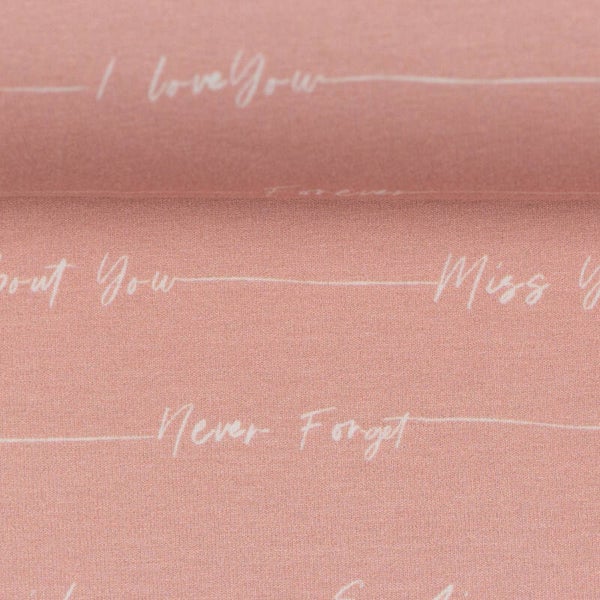 I love You
Forever
bout You Miss Y
Never Forget